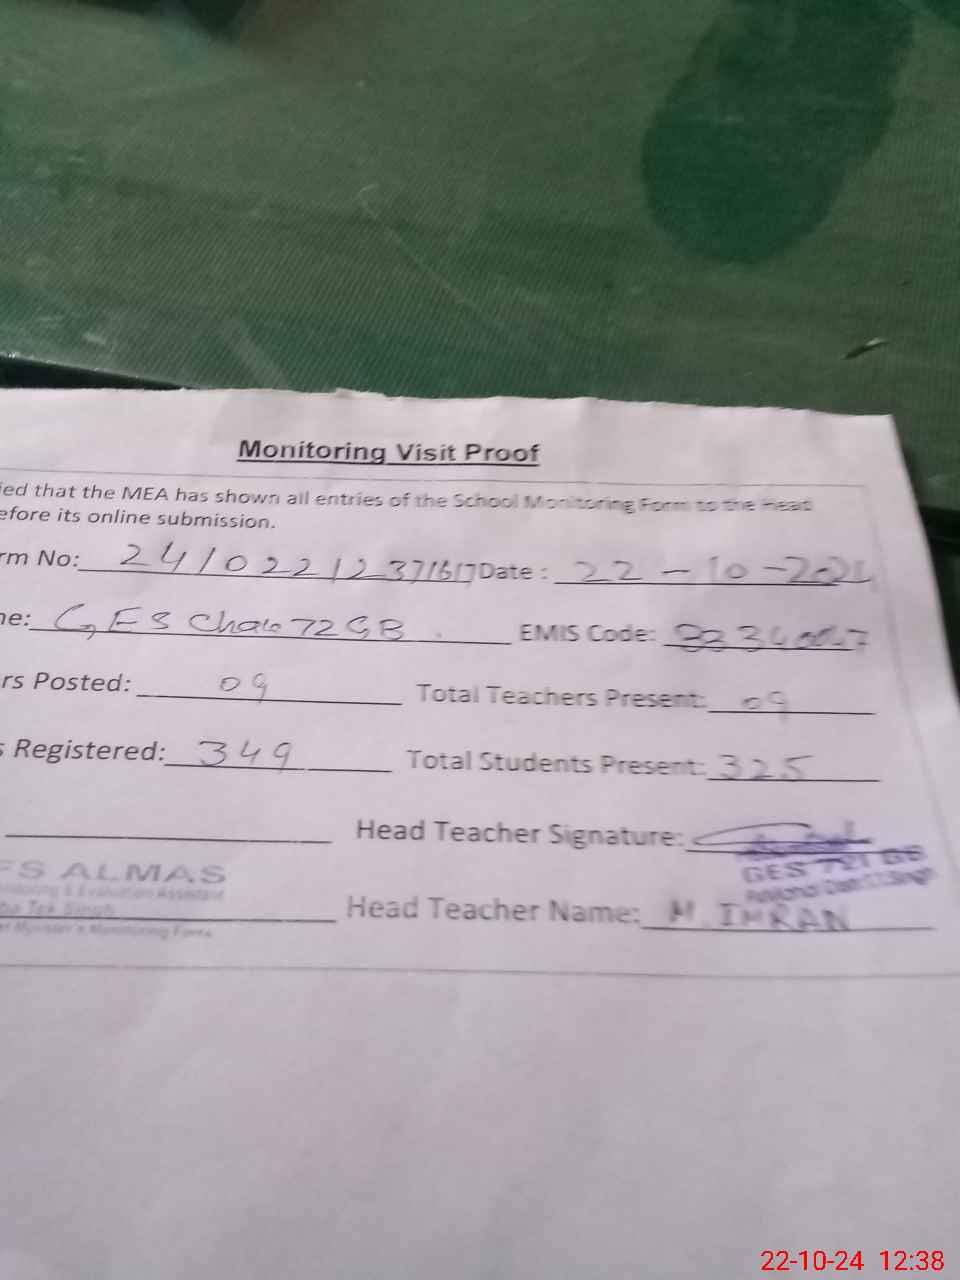 Monitoring Visit Proof
ied that the MEA has shown all entries of the School Monitoring Form to the Head
efore its online submission.
rm No: 241022123716 17 Date : 22-10-2024
ne: GES Chak 72 GB. EMIS Code:
rs Posted: 09 Total Teachers Present: 09
s Registered: 349 Total Students Present: 325
Head Teacher Signature:
ES ALMAS GES 721 GB
Monitoring & Evaluation Assistant
Tek Singh Head Teacher Name: M. IMRAN
Minister's Monitoring Force
22-10-24 12:38